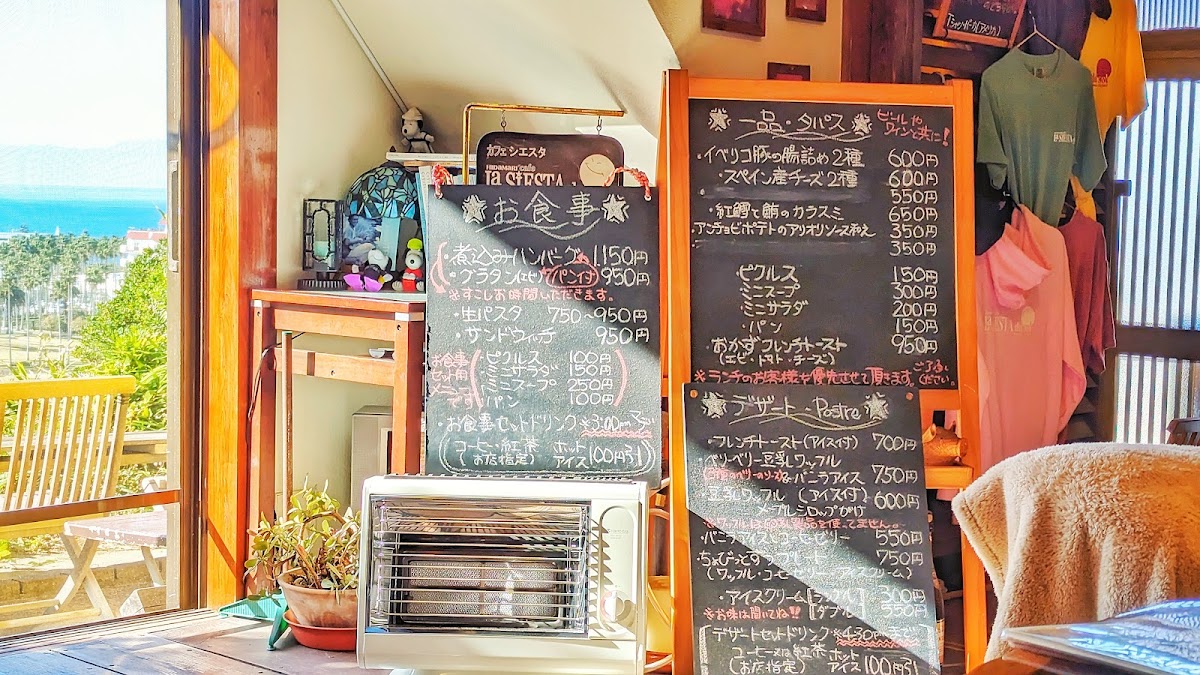 カフェシエスタ
HANAMARU cafe
la SIESTA
お食事
・煮込みハンバーグ 1,150円
・グラタン(エビ) パン付 950円
※すこしお時間いただきます。
・生パスタ 750~950円
・サンドウィッチ 950円
お食事セット用メニューです
ピクルス 100円
ミニサラダ 150円
ミニスープ 250円
パン 100円
・お食事セットドリンク ※3:00pmまで
コーヒー・紅茶 ホット
(お店指定) アイス 100円引
一品・タパス
ビールやワインと共に!
・イベリコ豚の腸詰め2種 600円
・スペイン産チーズ2種 600円
550円
・紅鱈と鮪のカラスミ 650円
・アンチョビポテトのアリオリソース和え 350円
350円
ピクルス 150円
ミニスープ 300円
ミニサラダ 200円
・パン 150円
・おかずフレンチトースト 950円
(エビ・トマト・チーズ)
※ランチのお客様を優先させて頂きます。ご了承ください。
デザート Postre
・フレンチトースト(アイス付) 700円
・ベリーベリー豆乳ワッフル
&バニラアイス 750円
・豆乳ワッフル (アイス付) 600円
メープルシロップがけ
※ワッフルは卵乳製品を使ってません。
・バニラアイスとコーヒーゼリー 550円
・ちょびっとずつプレート 750円
(ワッフル・コーヒーゼリー・アイスクリーム)
・アイスクリーム シングル 300円
ダブル 550円
※お味は聞いてね!!
デザートセットドリンク ※4:30pmまで
コーヒー又は紅茶 ホット
(お店指定) アイス 100円引
Tシャツ・パーカ(アメリカ)
la SIESTA